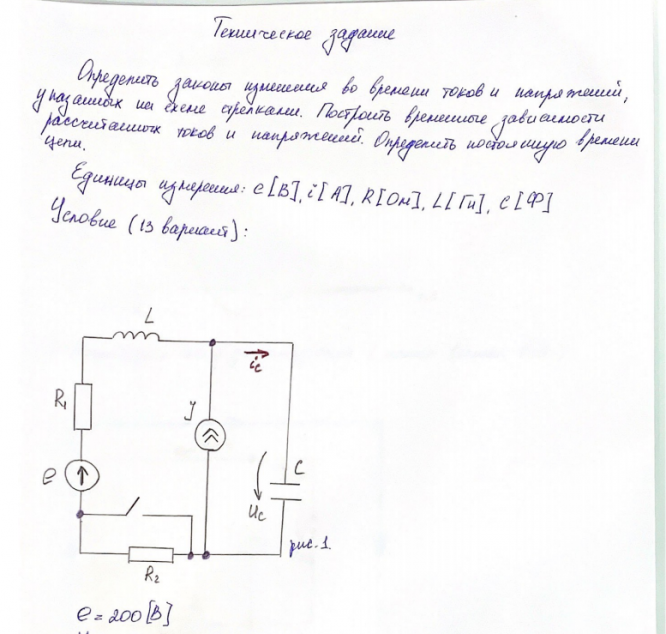 Техническое задание
Определить законы изменения во времени токов и напряжений,
указанных на схеме стрелками. Построить временные зависимости
рассчитанных токов и напряжений. Определить постоянную времени
цепи.
Единицы измерения: e[В], i[А], R[Ом], L[Гн], C[Ф]
Условие (13 вариант):
L
ic
R1
J
e
C
Uc
R2
рис. 1.
e = 200[В]